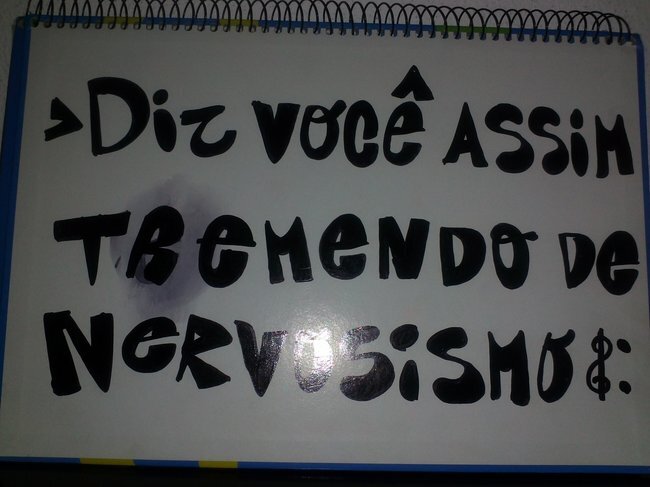 >Diz você assim
tremendo de
nervosismo𝄞: